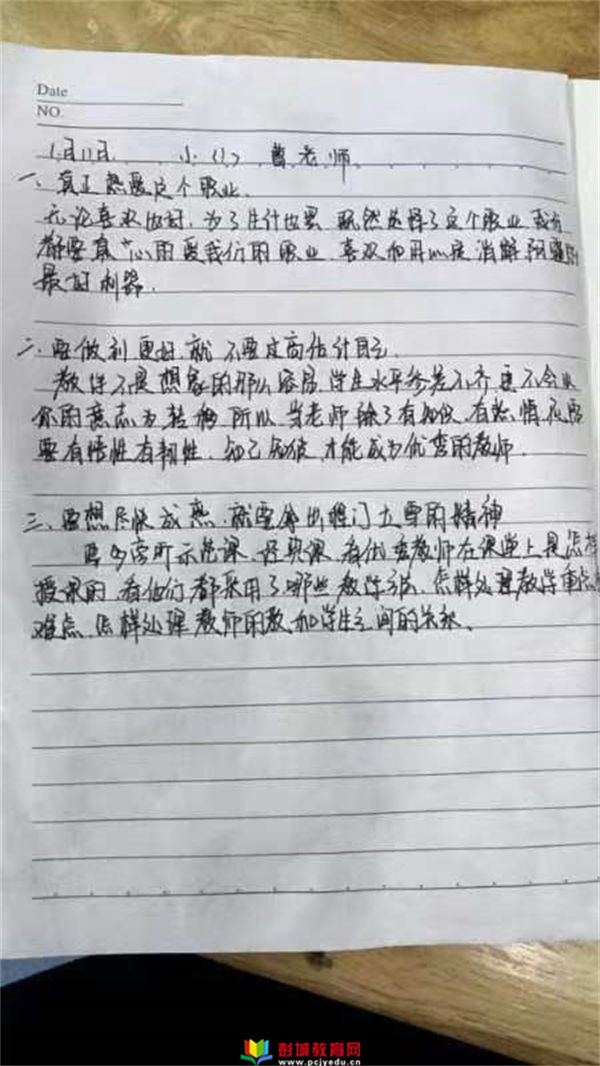 Date
NO.
1月11日 小(1) 曹老师
一、真正热爱这个职业.
无论喜欢也好,为了生计也罢,既然选择了这个职业,我们
都要真心的爱我们的职业,喜欢和用心是消解
最好利器.
二、要做到更好,就不要过高估计自己.
教学不是想象的那么容易,学生水平参差不齐,更不会以
你的意志为转移,所以,当老师除了有知识,有热情,还需
要有悟性有韧性,知己知彼,才能成为优秀的教师.
三、要想尽快成熟,就要拿出程门立雪的精神
要多旁听示范课、经典课,看优秀教师在课堂上是怎样
授课的,看他们都采用了哪些教学方法,怎样处理教学重点
难点,怎样处理教师的教和学生之间的关系、
彭城教育网
www.pcjyedu.cn